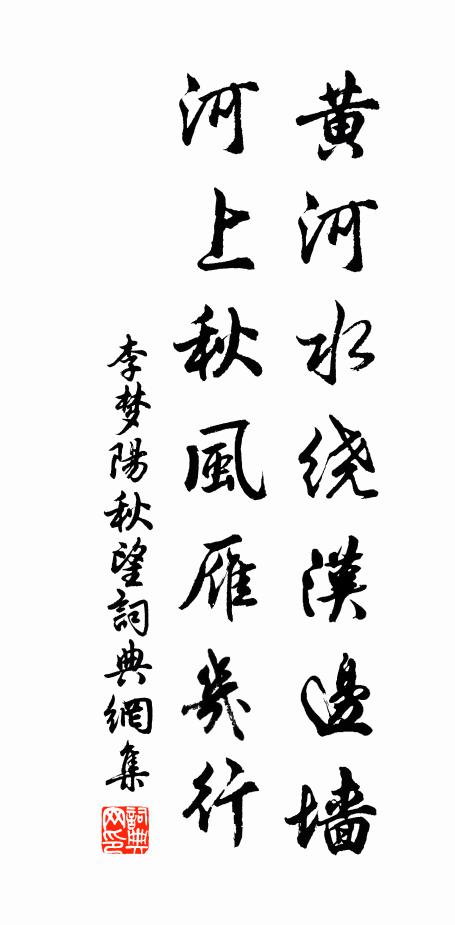 黄河水绕漢邊墻
河上秋風雁幾行
李梦陽秋望詞典網集
詞典网印